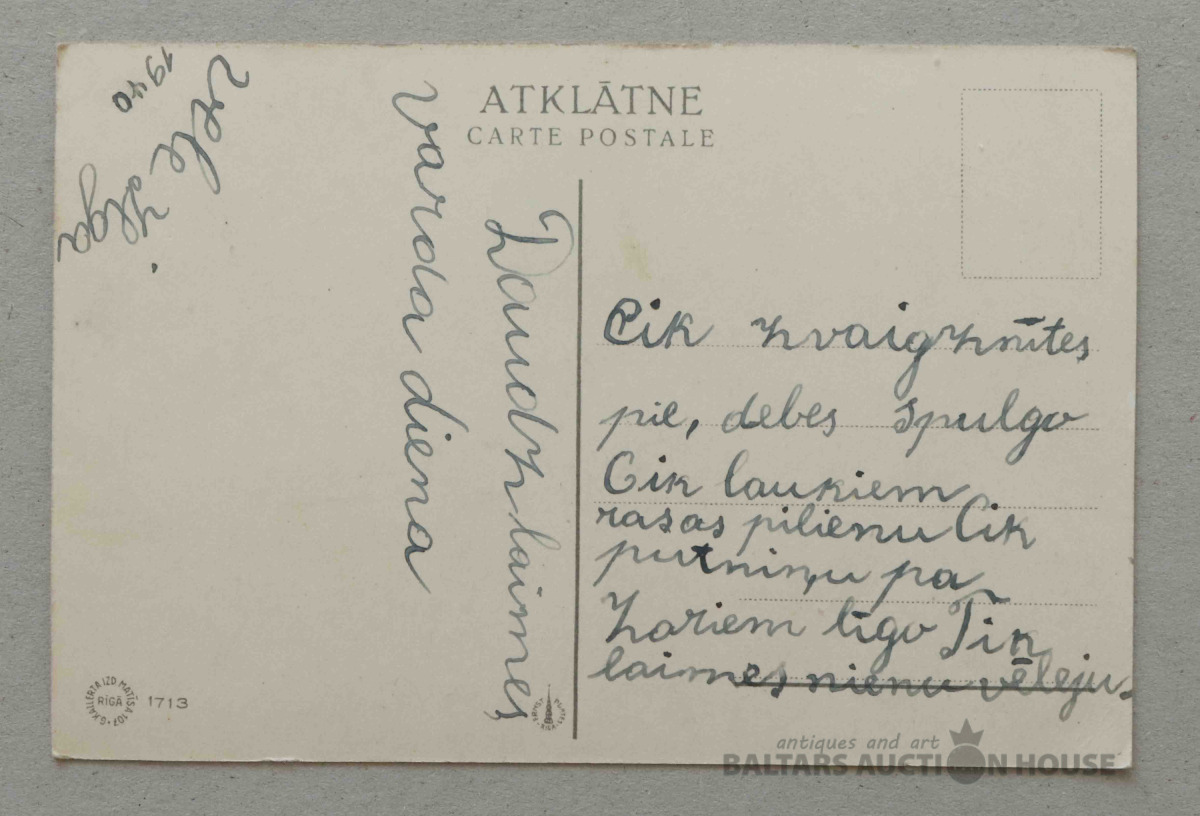 ATKLĀTNE
CARTE POSTALE
Daudz laimes
varda diena
vēle Ilga
1940
Cik zvaigznītes
pie, debes spulgo
Cik laukiem
rasas pilienu Cik
putniņu pa
zariem līgo Tik
laimes nienu vēleju.
G. KALLERTA IZD. MATĪSA 107
RĪGĀ
1713
antiques and art
BALTARS AUCTION HOUSE